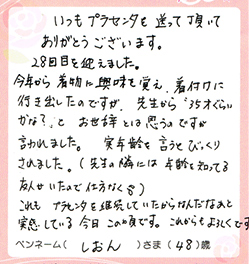 いつもプラセンタを送って頂いて
ありがとうございます。
28回目を迎えました。
今年から着物に興味を覚え、着付けに
行き出したのですが、先生から"35才くらい
かな?"と お世辞とは思うのですが
言われました。 実年齢を言うとびっくり
されました。(先生の隣には年齢を知ってる
友人がいたので仕方なく)
これも プラセンタを継続していたからなんだなあと
実感している今日この頃です。これからもよろしくです
ペンネーム( しおん )さま(48)歳